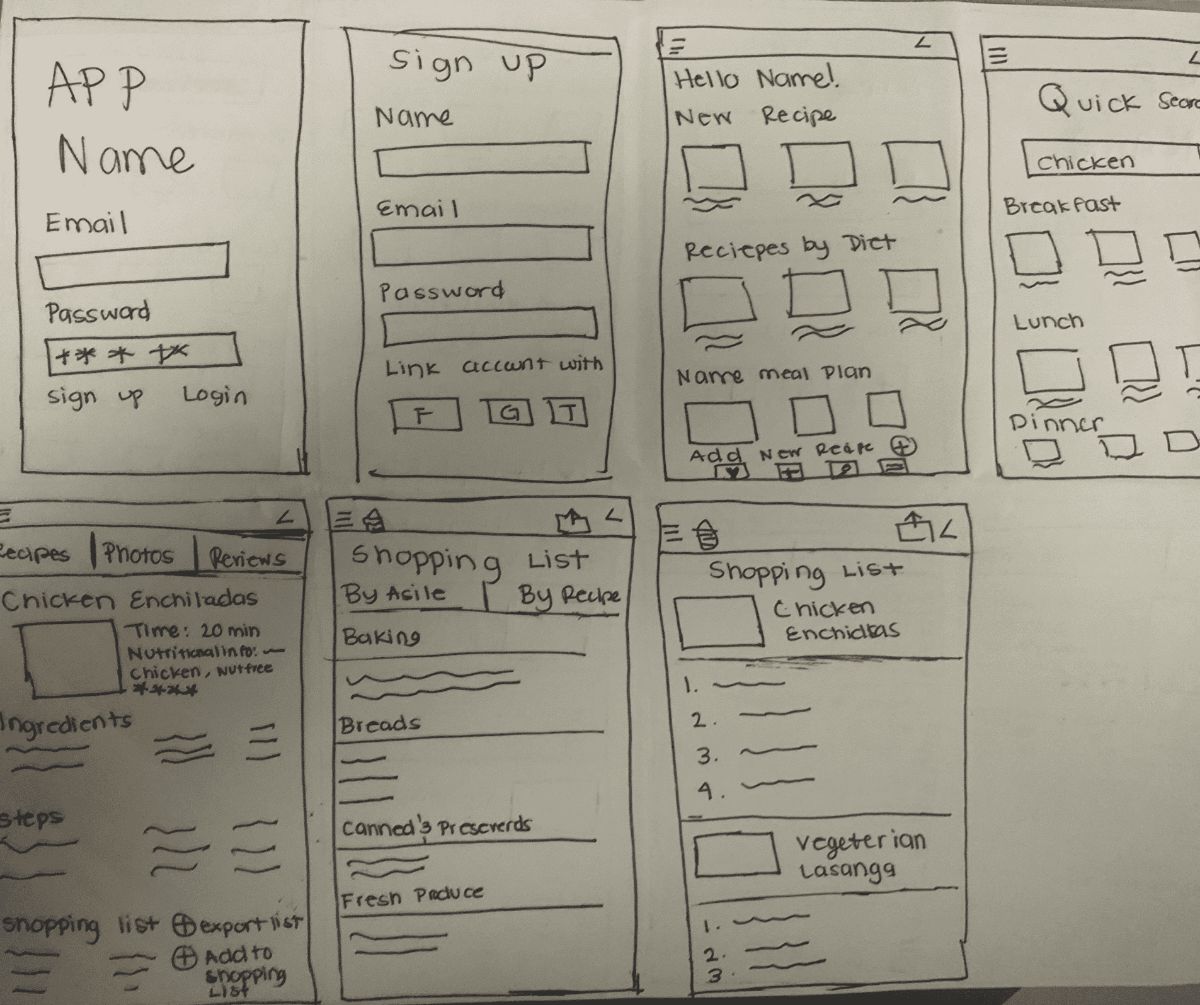 APP
Name
Email
Password
***
sign up Login
Sign up
Name
Email
Password
Link account with
F G T
Hello Name!
New Recipe
Reciepes by Diet
Name meal Plan
Add New Recipe +
Quick Searc
chicken
Breakfast
Lunch
Dinner
ecipes Photos Reviews
Chicken Enchiladas
Time: 20 min
Nutritional info:
chicken, nutfree
****
Ingredients
steps
shopping list + export list
+ Add to
shopping
List
Shopping List
By Asile By Recipe
Baking
Breads
Canned & Preseverds
Fresh Poduce
Shopping List
Chicken
Enchidtas
1.
2.
3.
4.
Vegeterian
Lasanga
1.
2.
3.